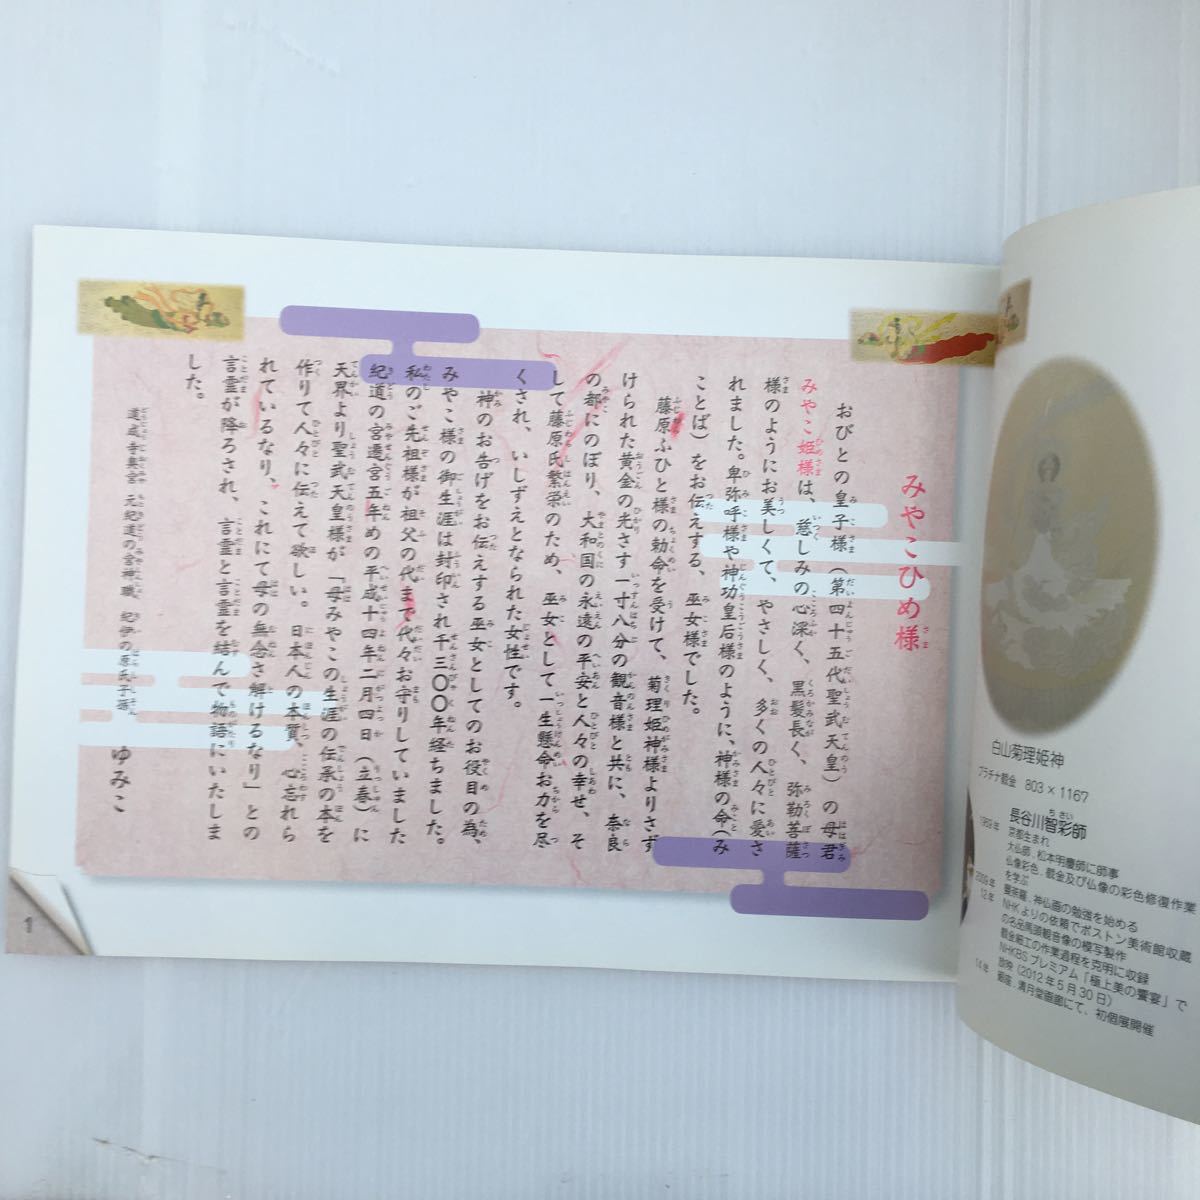 みやこひめ様
おびとの皇子様（第四十五代聖武天皇）の母君
みやこ姫様は、慈しみの心深く、黒髪長く、弥勒菩薩
様のようにお美しくて、やさしく、多くの人々に愛さ
れました。卑弥呼様や神功皇后様のように、神様の命（み
ことば）をお伝えする、巫女様でした。
藤原ふひと様の勅命を受けて、菊理姫神様よりさず
けられた黄金の光さす一寸八分の観音様と共に、奈良
の都にのぼり、大和国の永遠の平安と人々の幸せ、そ
して藤原氏繁栄のため、巫女として一生懸命お力を尽
くされ、いしずえとなられた女性です。
神のお告げをお伝えする巫女としてのお役目の為、
みやこ様の御生涯は封印され千三〇〇年経ちました。
私のご先祖様が祖父の代まで代々お守りしていました
紀道の宮遷宮五年めの平成十四年二月四日（立春）に
天界より聖武天皇様が「母みやこの生涯の伝承の本を
作りて人々に伝えて欲しい。日本人の本質、心忘れら
れているなり、これにて母の無念さ解けるなり」との
言霊が降ろされ、言霊と言霊を結んで物語にいたしま
した。
道成寺奥宮 元紀道の宮神職 紀伊の原氏子孫 ゆみこ
1
白山菊理姫神
プラチナ截金 803×1167
長谷川智彩師
1969年 京都生まれ
大仏師、松本明慶師に師事
仏像彩色、截金及び仏像の彩色修復作業
を学ぶ
2009年 曼荼羅、神仏画の勉強を始める
12年 NHKよりの依頼でボストン美術館収蔵
の名品馬頭観音像の模写製作
截金細工の作業過程を克明に収録
NHKBSプレミアム「極上美の饗宴」で
放映（2012年5月30日）
14年 銀座、清月堂画廊にて、初個展開催